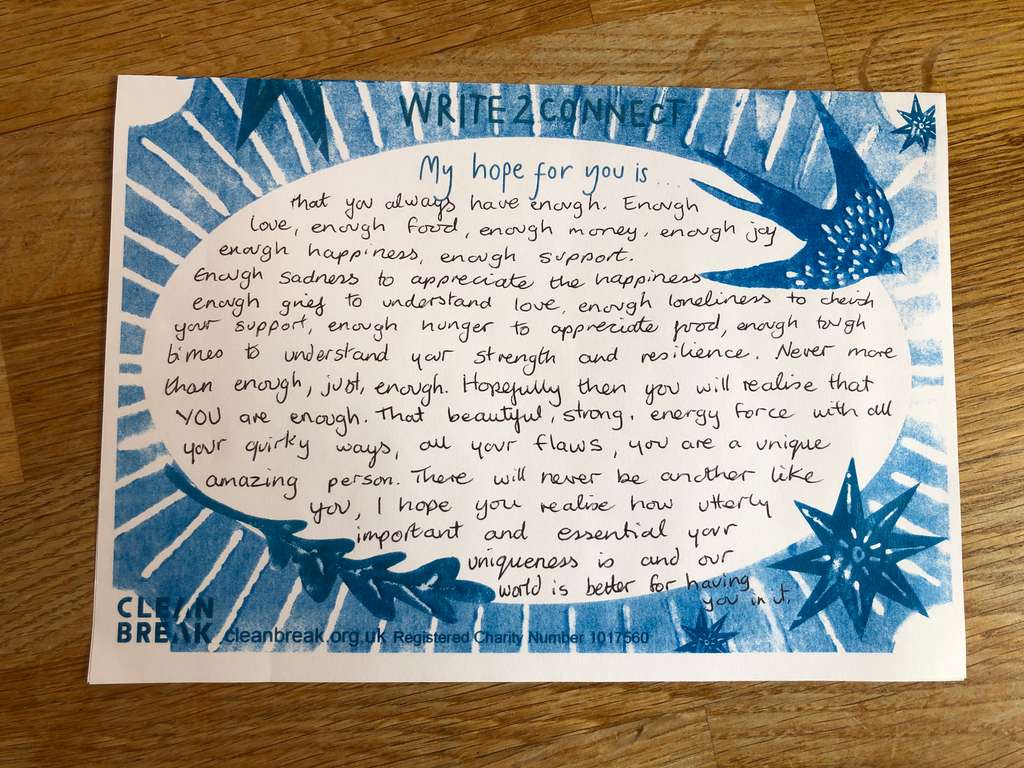 WRITE 2 CONNECT
My hope for you is ...
that you always have enough. Enough
love, enough food, enough money, enough joy
enough happiness, enough support.
Enough sadness to appreciate the happiness
enough grief to understand love, enough loneliness to cherish
your support, enough hunger to appreciate food, enough tough
times to understand your strength and resilience. Never more
than enough, just, enough. Hopefully then you will realise that
YOU are enough. That beautiful, strong, energy force with all
your quirky ways, all your flaws, you are a unique
amazing person. There will never be another like
you, I hope you realise how utterly
important and essential your
uniqueness is and our
world is better for having
you in it.
CLEAN
BREAK cleanbreak.org.uk Registered Charity Number 1017560